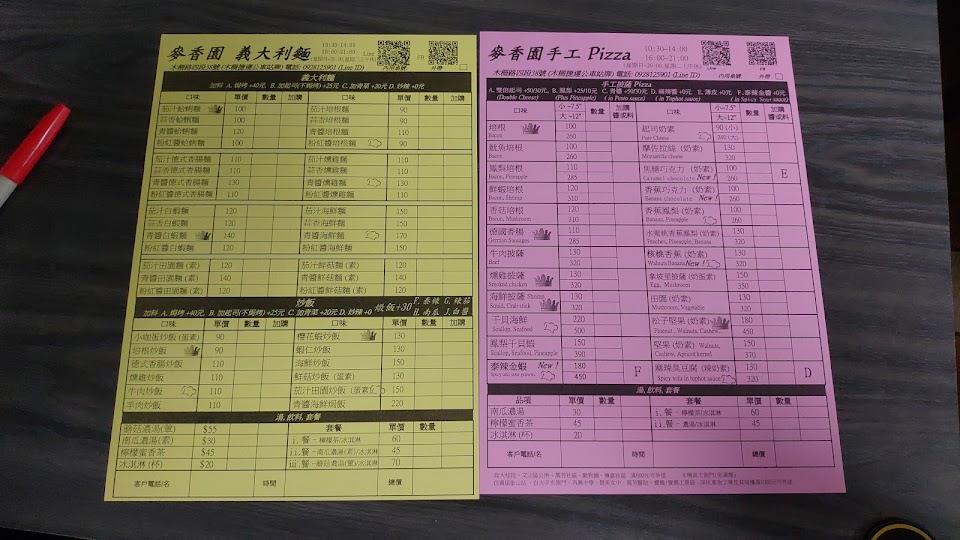 麥香園 義大利麵
10:30-14:00
16:00-21:00
Line
木柵路四段38號 (木柵捷運公車站牌) 電話: 0928125901 (Line ID)
義大利麵
加料 A. 焗烤 +40元, B. 加起司(不焗烤) +25元 C. 加青菜 +30元 D. 炒辣 +0元
口味 單價 數量 加購 口味 單價 數量 加購
茄汁蛤蜊麵 100 茄汁培根麵 90
蒜香蛤蜊麵 100 蒜香培根麵 90
青醬蛤蜊麵 120 青醬培根麵 110
粉紅醬蛤蜊麵 100 粉紅醬培根麵 90
茄汁德式香腸麵 110 茄汁燻雞麵 110
蒜香德式香腸麵 110 蒜香燻雞麵 110
青醬德式香腸麵 130 青醬燻雞麵 130
粉紅醬德式香腸麵 110 粉紅醬燻雞麵 110
茄汁白蝦麵 120 茄汁海鮮麵 150
蒜香白蝦麵 120 蒜香海鮮麵 150
青醬白蝦麵 140 青醬海鮮麵 170
粉紅醬白蝦麵 120 粉紅醬海鮮麵 150
茄汁田園麵 (素) 120 茄汁鮮菇麵 (素) 120
青醬田園麵 (素) 140 青醬鮮菇麵 (素) 140
粉紅醬田園麵 (素) 120 粉紅醬鮮菇麵 (素) 120
炒飯
加料 A. 焗烤 +40元, B. 加起司(不焗烤) +25元 C. 加青菜 +20元 D. 炒辣 +0 燉飯+30 F. 泰辣 G. 辣茄 H. 南瓜 J. 白醬
口味 單價 數量 加購 口味 單價 數量 加購
小咖蛋炒飯 (蛋素) 90 櫻花蝦炒飯 130
培根炒飯 90 蝦仁炒飯 130
德式香腸炒飯 110 海鮮炒飯 150
燻雞炒飯 110 鮮菇炒飯 (蛋素) 130
牛肉炒飯 110 茄汁田園炒飯 (蛋素) 150
羊肉炒飯 110 青醬海鮮焗飯 220
湯, 飲料, 套餐
蘑菇濃湯(葷) $55 套餐 單價 數量
南瓜濃湯(素) $30 i. 餐 - 檸檬茶/冰淇淋 60
檸檬蜜香茶 $45 ii. 餐 - 南瓜濃湯(素)/冰淇淋 45
冰淇淋 (杯) $20 iii. 餐 - 蘑菇濃湯(葷)/冰淇淋 70
客戶電話/名 時間 總價
麥香園手工 Pizza
10:30-14:00
16:00-21:00
木柵路四段38號 (木柵捷運公車站牌) 電話: 0928125901 (Line ID)
手工披薩 Pizza
A. 雙倍起司 +50/90元, B. 鳳梨 +25/10元 C. 青醬 +50/30元 D. 麻辣醬 +0元 E. 薄皮 +0元 F. 泰辣金醬 +0元
(Double Cheese) (Plus Pineapple) ( in Pesto sauce) ( in Tophot sauce) ( in Spicy Sour sauce)
口味 小~7.5" 大~12" 數量 加購醬或料 口味 小~7.5" 大~12" 數量 加購醬或料
培根 Bacon 100 260 起司奶素 Pure Cheese 90 (小) 240 (大)
魷魚培根 Bacon 100 260 摩佐拉絲 (奶素) Mozzarella cheese 130 320
鳳梨培根 Bacon, Pineapple 110 285 焦糖巧克力 (奶素) Caramel chocolate New ! 100 260 E
鮮蝦培根 Bacon, Shrimp 120 310 香蕉巧克力 (奶素) Banana chocolate New ! 100 260
香菇培根 Bacon, Mushroom 120 310 香蕉鳳梨 (奶素) Banana, Pineapple 100 260
德國香腸 German Sausages 110 285 水蜜桃香蕉鳳梨 (奶素) Peaches, Pineapple, Banana 120 320
牛肉披薩 Beef 130 320 核桃香蕉 (奶素) Walnuts Banana New ! 120 320
燻雞披薩 Smoked chicken 130 320 拿坡里披薩 (奶蛋素) Egg, Mushroom 150 350
海鮮披薩 Shrimp, Squid, Crab stick 130 320 田園 (奶素) Mushroom, Vegetable 120 320
干貝海鮮 Scallop, Seafood 220 500 松子堅果 (奶素) Pinenut, Walnuts, Cashew 180 450
鳳梨干貝蝦 Scallop, Seafood, Pineapple 150 390 堅果 (奶素) Walnuts, Cashew, Apricot kernel 150 370
泰辣金蝦 New ! 180 450 F 麻辣臭豆腐 (辣奶素) Spicy tofu in tophot sauce 120 320 D
湯, 飲料, 套餐
品項 單價 數量 套餐 單價 數量
南瓜濃湯 30 i. 餐 - 檸檬茶/冰淇淋 60
檸檬蜜香茶 45 ii. 餐 - 南瓜濃湯/冰淇淋 45
冰淇淋 (杯) 20
客戶電話/名 時間 總價